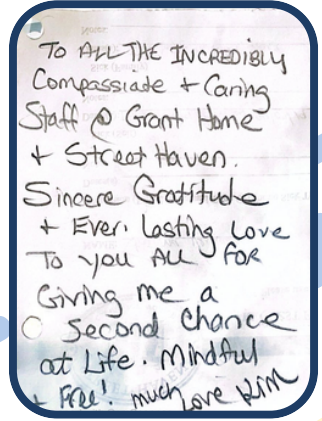 To ALL THE INCREDIBLY
Compassiate + Caring
Staff @ Grant Home
+ Street Haven.
Sincere Gratitude
+ Ever. Lasting Love
To you ALL FOR
Giving me a
Second Chance
at Life. Mindful
+ Free! much Love Kim